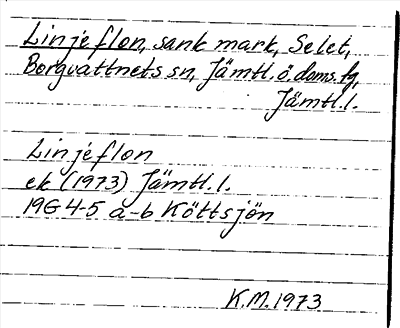 Linjeflon, sank mark, Selet,
Borgvattnets sn, Jämtl. ö. doms. fg,
Jämtl. l.
Linjeflon
ek (1973) Jämtl. l.
19G 4-5 a-b Köttsjön
K.M. 1973